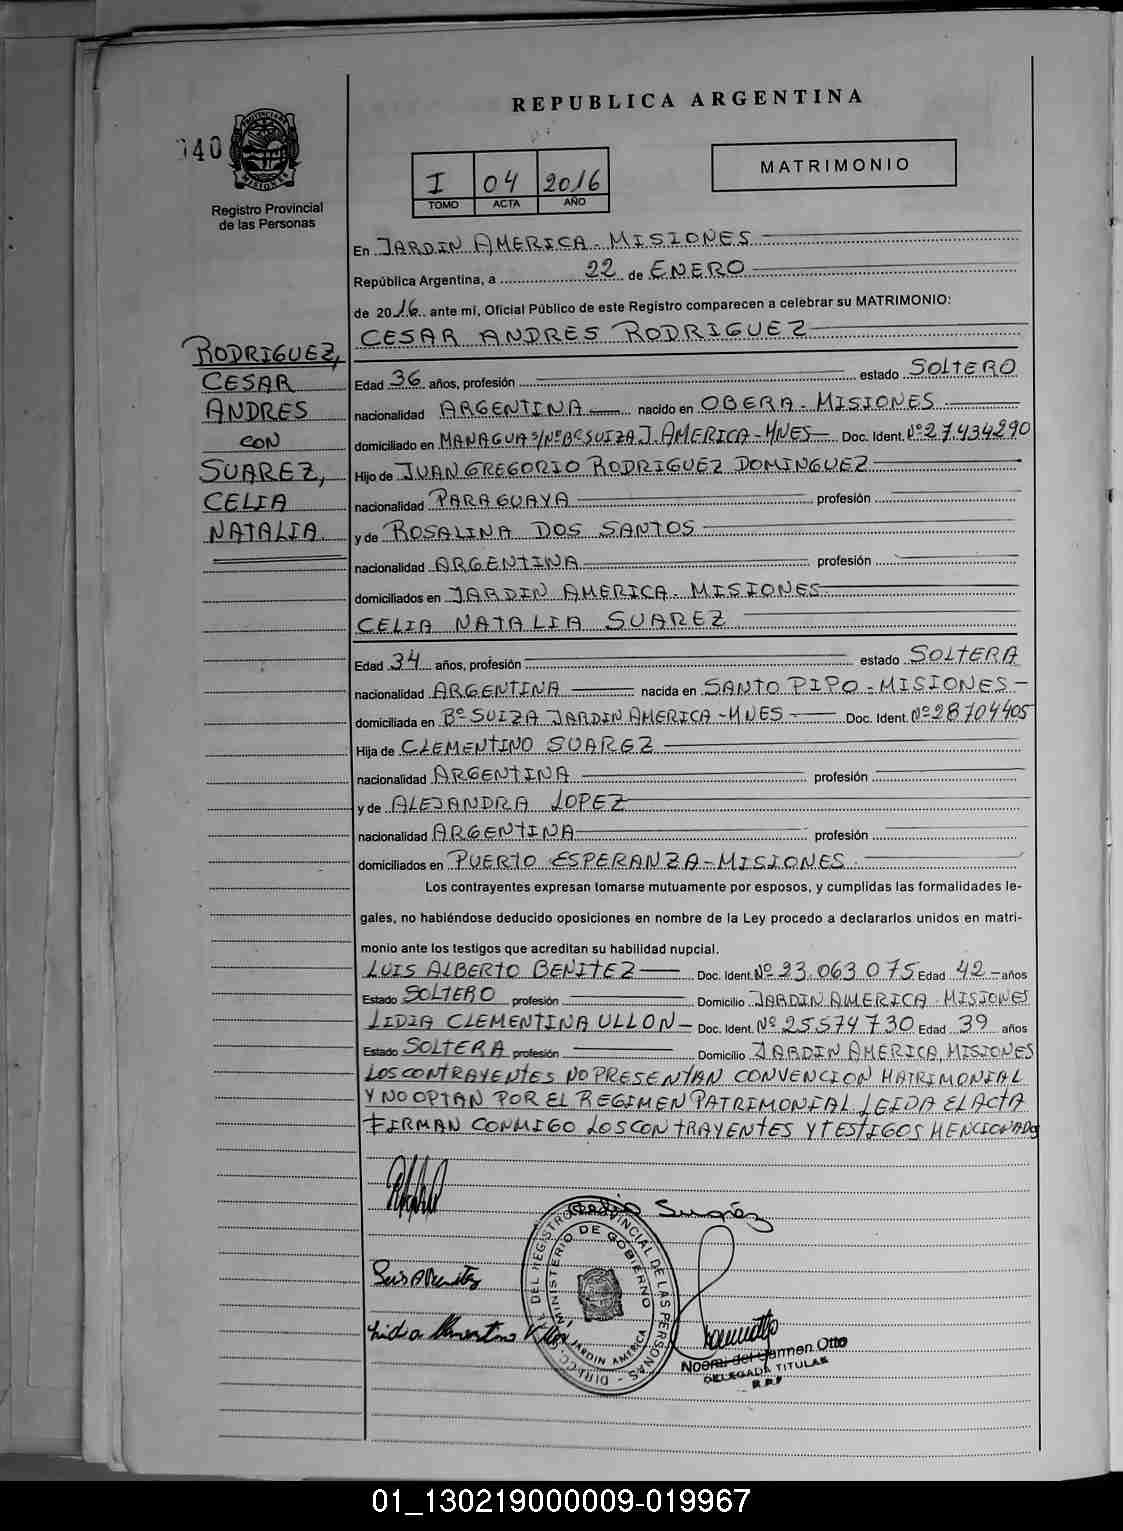 REPUBLICA ARGENTINA
040
PROVINCIA DE MISIONES
Registro Provincial
de las Personas
I 04 2016
TOMO ACTA AÑO
MATRIMONIO
En JARDIN AMERICA - MISIONES
República Argentina, a 22 de ENERO
de 2016 ante mí, Oficial Público de este Registro comparecen a celebrar su MATRIMONIO:
CESAR ANDRES RODRIGUEZ
RODRIGUEZ,
CESAR
ANDRES
CON
SUAREZ,
CELIA
NATALIA
Edad 36 años, profesión estado SOLTERO
nacionalidad ARGENTINA nacido en OBERA - MISIONES
domiciliado en MANAGUA S/Nº Bº SUIZA J. AMERICA - MNES Doc. Ident. Nº 27.434290
Hijo de JUAN GREGORIO RODRIGUEZ DOMINGUEZ
nacionalidad PARAGUAYA profesión
y de ROSALINA DOS SANTOS
nacionalidad ARGENTINA profesión
domiciliados en JARDIN AMERICA - MISIONES
CELIA NATALIA SUAREZ
Edad 34 años, profesión estado SOLTERA
nacionalidad ARGENTINA nacida en SANTO PIPO - MISIONES -
domiciliada en Bº SUIZA JARDIN AMERICA - MNES Doc. Ident. Nº 28704405
Hija de CLEMENTINO SUAREZ
nacionalidad ARGENTINA profesión
y de ALEJANDRA LOPEZ
nacionalidad ARGENTINA profesión
domiciliados en PUERTO ESPERANZA - MISIONES
Los contrayentes expresan tomarse mutuamente por esposos, y cumplidas las formalidades le-
gales, no habiéndose deducido oposiciones en nombre de la Ley procedo a declararlos unidos en matri-
monio ante los testigos que acreditan su habilidad nupcial.
LUIS ALBERTO BENITEZ Doc. Ident. Nº 23.063.075 Edad 42 años
Estado SOLTERO profesión Domicilio JARDIN AMERICA - MISIONES
LIDIA CLEMENTINA ULLON Doc. Ident. Nº 25574730 Edad 39 años
Estado SOLTERA profesión Domicilio JARDIN AMERICA, MISIONES
LOS CONTRAYENTES NO PRESENTAN CONVENCION MATRIMONIAL
Y NO OPTAN POR EL REGIMEN PATRIMONIAL LEIDA EL ACTA
FIRMAN CONMIGO LOS CONTRAYENTES Y TESTIGOS MENCIONADOS
Celia Suarez
DIRECC. DEL REGISTRO PROVINCIAL DE LAS PERSONAS
MINISTERIO DE GOBIERNO
JARDIN AMERICA
Luis A Benitez
Lidia Clementina Ullon
Noemi del Carmen Otto
DELEGADA TITULAR
R.P.P
01_130219000009-019967